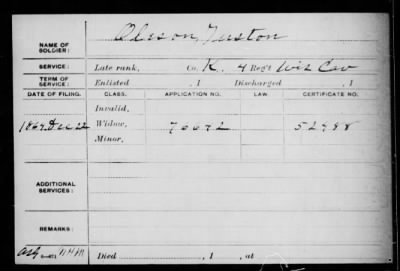 NAME OF SOLDIER: Oleson, Tuston
SERVICE: Late rank, Co. K. 4 Reg't Wis Cav
TERM OF SERVICE: Enlisted , 1 Discharged , 1
DATE OF FILING. CLASS. APPLICATION NO. LAW. CERTIFICATE NO.
Invalid,
1864 Dec 22 Widow, 76692 52988
Minor,
ADDITIONAL SERVICES:
REMARKS:
Died , 1 , at